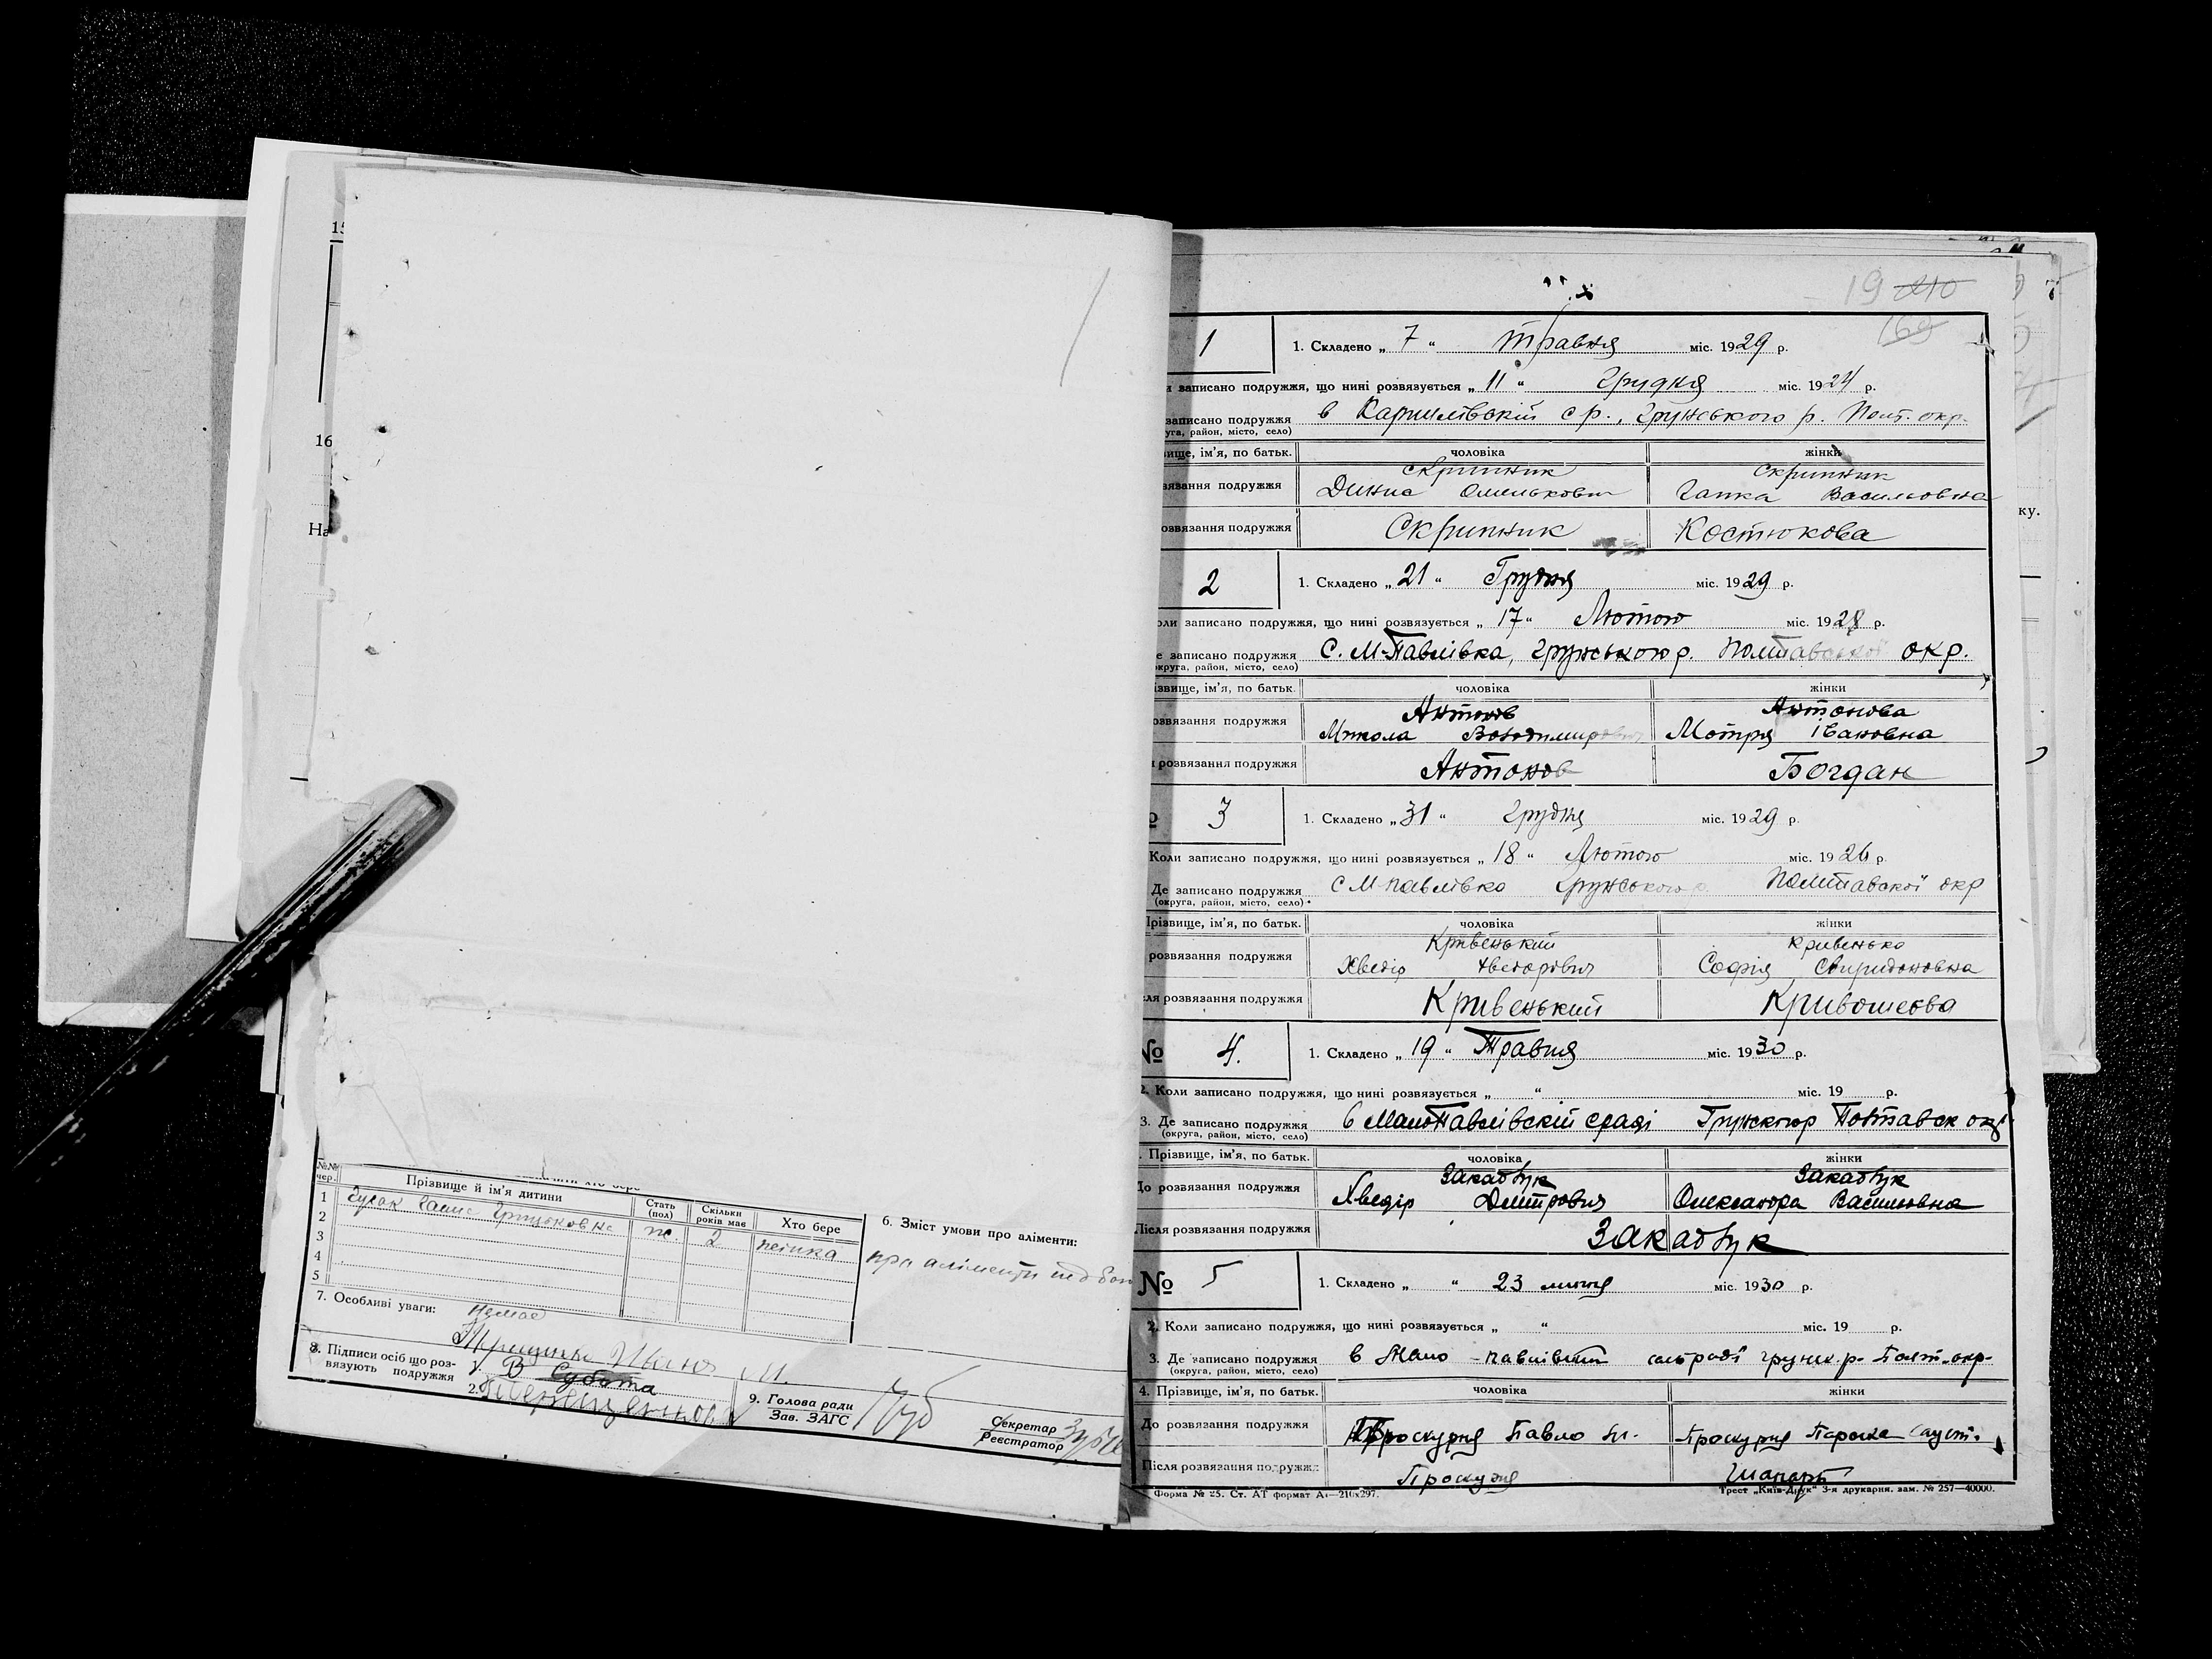 15
16
На
№№ чер.
Прізвище й ім'я дитини
Стать (пол)
Скільки років має
Хто бере
1
2
3
4
5
ж. 2
6. Зміст умови про аліменти:
про аліменти
7. Особливі уваги: немає
8. Підписи осіб що роз-
вязують подружжя
1. В Субота
2.
9. Голова ради
Зав. ЗАГС
Секретар
Реєстратор
19 210
169
1
1. Складено „ 7 “ травня міс. 1929 р.
записано подружжя, що нині розвязується „ 11 “ грудня міс. 1924 р.
записано подружжя в ср., Грунського р. Полт. окр.
уга, район, місто, село)
вище, ім'я, по батьк. чоловіка жінки
Скрипник Скрипник
вязання подружжя Динис Омелькович Гапка Васильовна
озвязання подружжя Скрипник Костюкова
2
1. Складено „ 21 “ Грудня міс. 1929 р.
оли записано подружжя, що нині розвязується „ 17 “ Лютого міс. 1928 р.
е записано подружжя С. М-Павлівка, Грунського р. Полтавської окр.
округа, район, місто, село)
ізвище, ім'я, по батьк. чоловіка жінки
Антонов Антонова
озвязання подружжя Микола Володимирович Мотря Івановна
розвязання подружжя Антонов Богдан
3
1. Складено „ 31 “ Грудня міс. 1929 р.
Коли записано подружжя, що нині розвязується „ 18 “ Лютого міс. 1926 р.
Де записано подружжя С М-павлівка Грунського р. Полтавської окр
(округа, район, місто, село)
Прізвище, ім'я, по батьк. чоловіка жінки
Кривенький Кривенька
розвязання подружжя Хведір Хведорович Софія Свиридоновна
ля розвязання подружжя Кривенький Кривошеєва
№ 4.
1. Складено „ 19 “ Травня міс. 1930 р.
2. Коли записано подружжя, що нині розвязується „ “ міс. 19 р.
3. Де записано подружжя в МалоПавлівскій сраді Полтавск окр
(округа, район, місто, село)
Прізвище, ім'я, по батьк. чоловіка жінки
До розвязання подружжя Хведір Дмитрович Олександра Васильовна
Після розвязання подружжя
№ 5
1. Складено „ “ 23 липня міс. 1930 р.
2. Коли записано подружжя, що нині розвязується „ “ міс. 19 р.
3. Де записано подружжя в Мало-павлівській сельраді грунск. р. Полт. окр.
(округа, район, місто, село)
4. Прізвище, ім'я, по батьк. чоловіка жінки
До розвязання подружжя Проскурня Павло Проскурня Параска
Після розвязання подружжя Проскурня Шапарь
Форма № 25. Ст. АТ формат А4—210х297.
Трест „Київ-Друк“ 3-я друкарня. зам. № 257—40000.
ку.